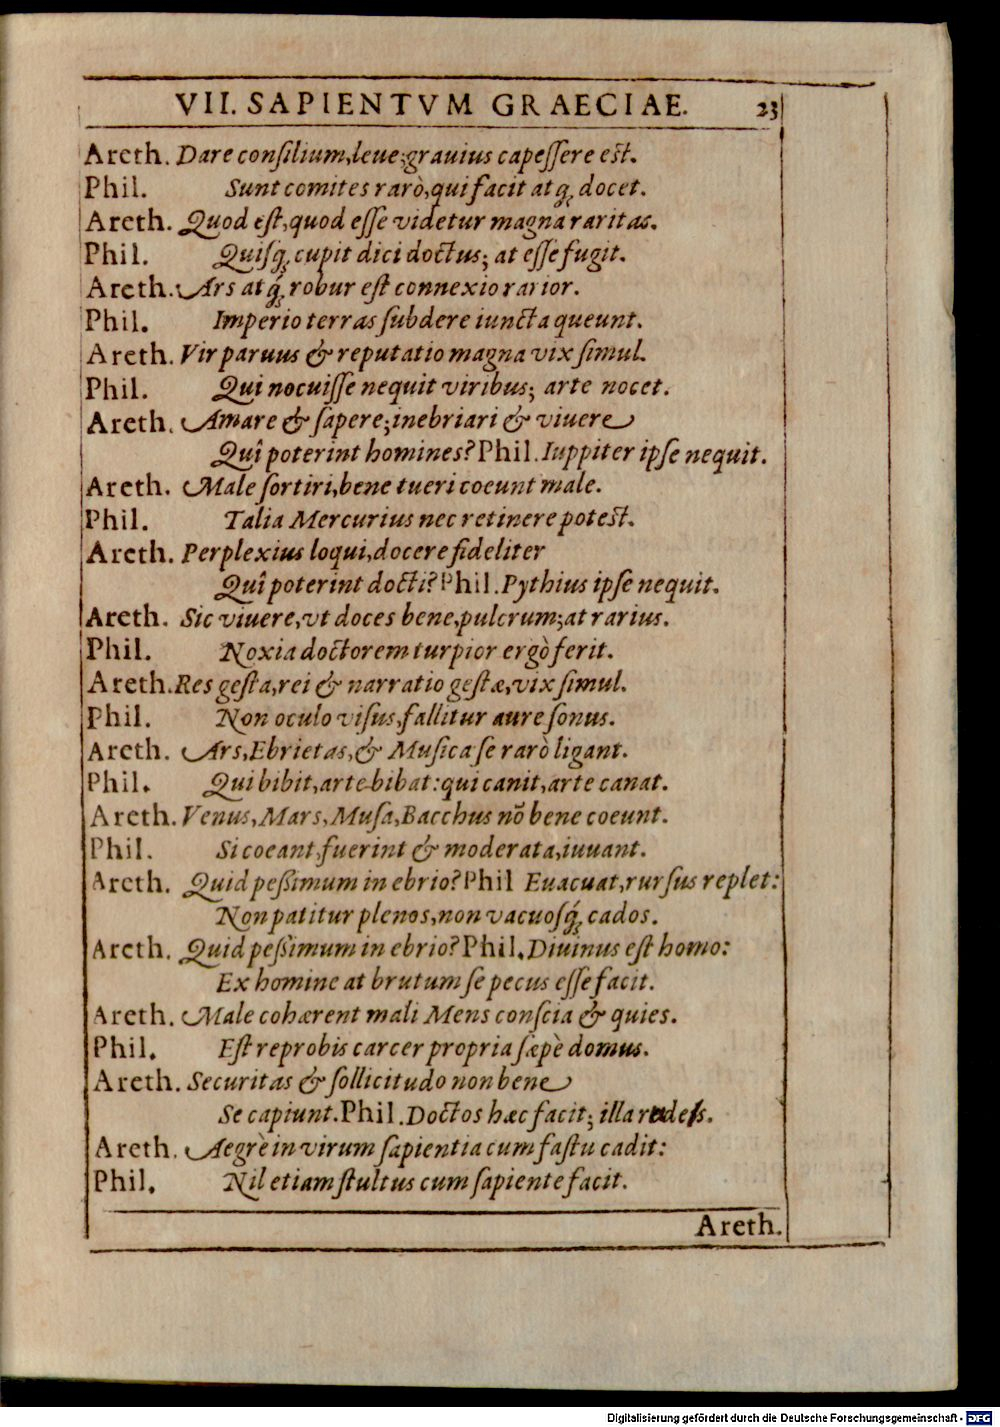 VII. SAPIENTVM GRAECIAE. 23
Areth. Dare conſilium, leue; grauius capeſſere est.
Phil. Sunt comites rarò, qui facit atq́; docet.
Areth. Quod eſt, quod eſſe videtur magna raritas.
Phil. Quiſq́; cupit dici doctus; at eſſe fugit.
Areth. Ars atq́; robur eſt connexio rarior.
Phil. Imperio terras ſubdere iuncta queunt.
Areth. Vir paruus & reputatio magna vix ſimul.
Phil. Qui nocuiſſe nequit viribus; arte nocet.
Areth. Amare & ſapere; inebriari & viuere
Quî poterint homines? Phil. Iuppiter ipſe nequit.
Areth. Male ſortiri, bene tueri coeunt male.
Phil. Talia Mercurius nec retinere potest.
Areth. Perplexius loqui, docere fideliter
Quî poterint docti? Phil. Pythius ipſe nequit.
Areth. Sic viuere, vt doces bene, pulcrum; at rarius.
Phil. Noxia doctorem turpior ergò ferit.
Areth. Res geſta, rei & narratio geſtæ, vix ſimul.
Phil. Non oculo viſus, fallitur aure ſonus.
Areth. Ars, Ebrietas, & Muſica ſe rarò ligant.
Phil. Qui bibit, arte bibat: qui canit, arte canat.
Areth. Venus, Mars, Muſa, Bacchus nõ bene coeunt.
Phil. Si coeant, fuerint & moderata, iuuant.
Areth. Quid peßimum in ebrio? Phil Euacuat, rurſus replet:
Non patitur plenos, non vacuoſq́; cados.
Areth. Quid peßimum in ebrio? Phil. Diuinus eſt homo:
Ex homine at brutum ſe pecus eſſe facit.
Areth. Male cohærent mali Mens conſcia & quies.
Phil. Eſt reprobis carcer propria ſæpè domus.
Areth. Securitas & ſollicitudo non bene
Se capiunt. Phil. Doctos hæc facit; illa rudes.
Areth. Aegrè in virum ſapientia cum faſtu cadit:
Phil. Nil etiam ſtultus cum ſapiente facit.
Areth.
Digitalisierung gefördert durch die Deutsche Forschungsgemeinschaft - DFG